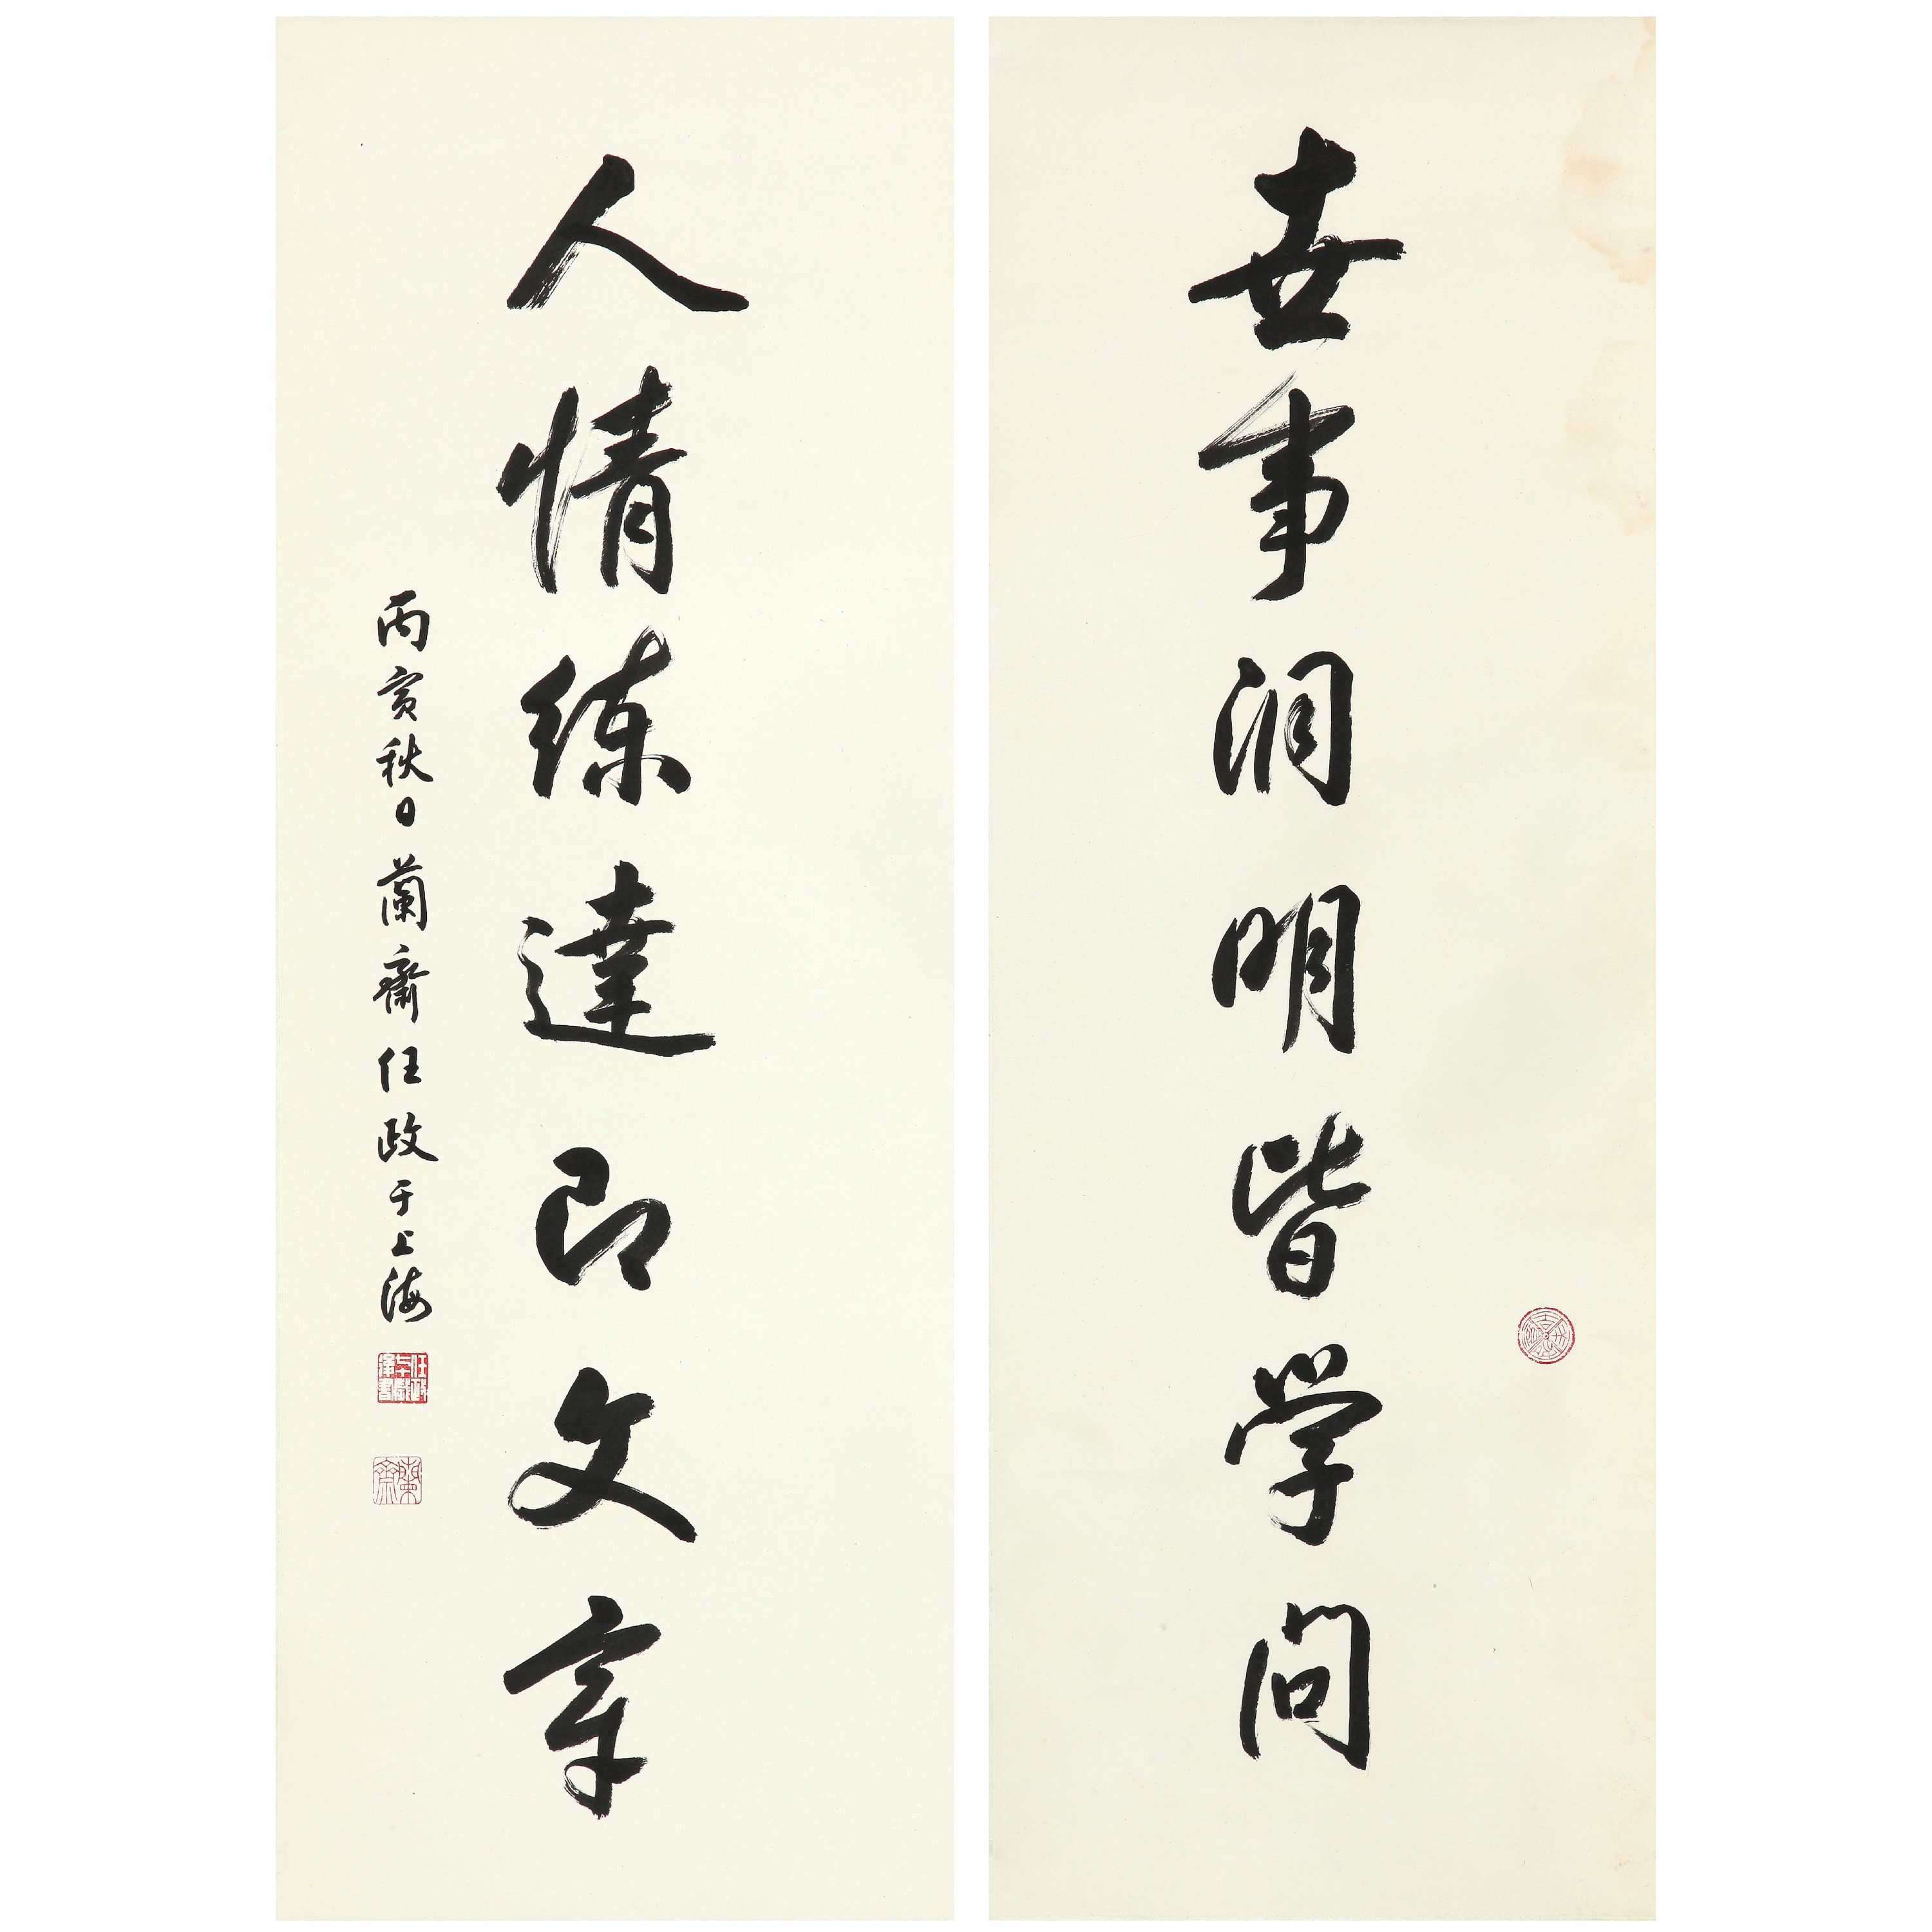 世事洞明皆学问
人情练達即文章
丙寅秋日蘭齋任政于上海
蘭齋